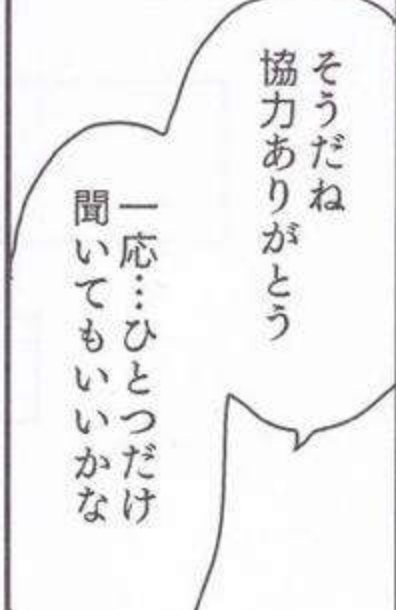 そうだね
協力ありがとう
一応…ひとつだけ
聞いてもいいかな